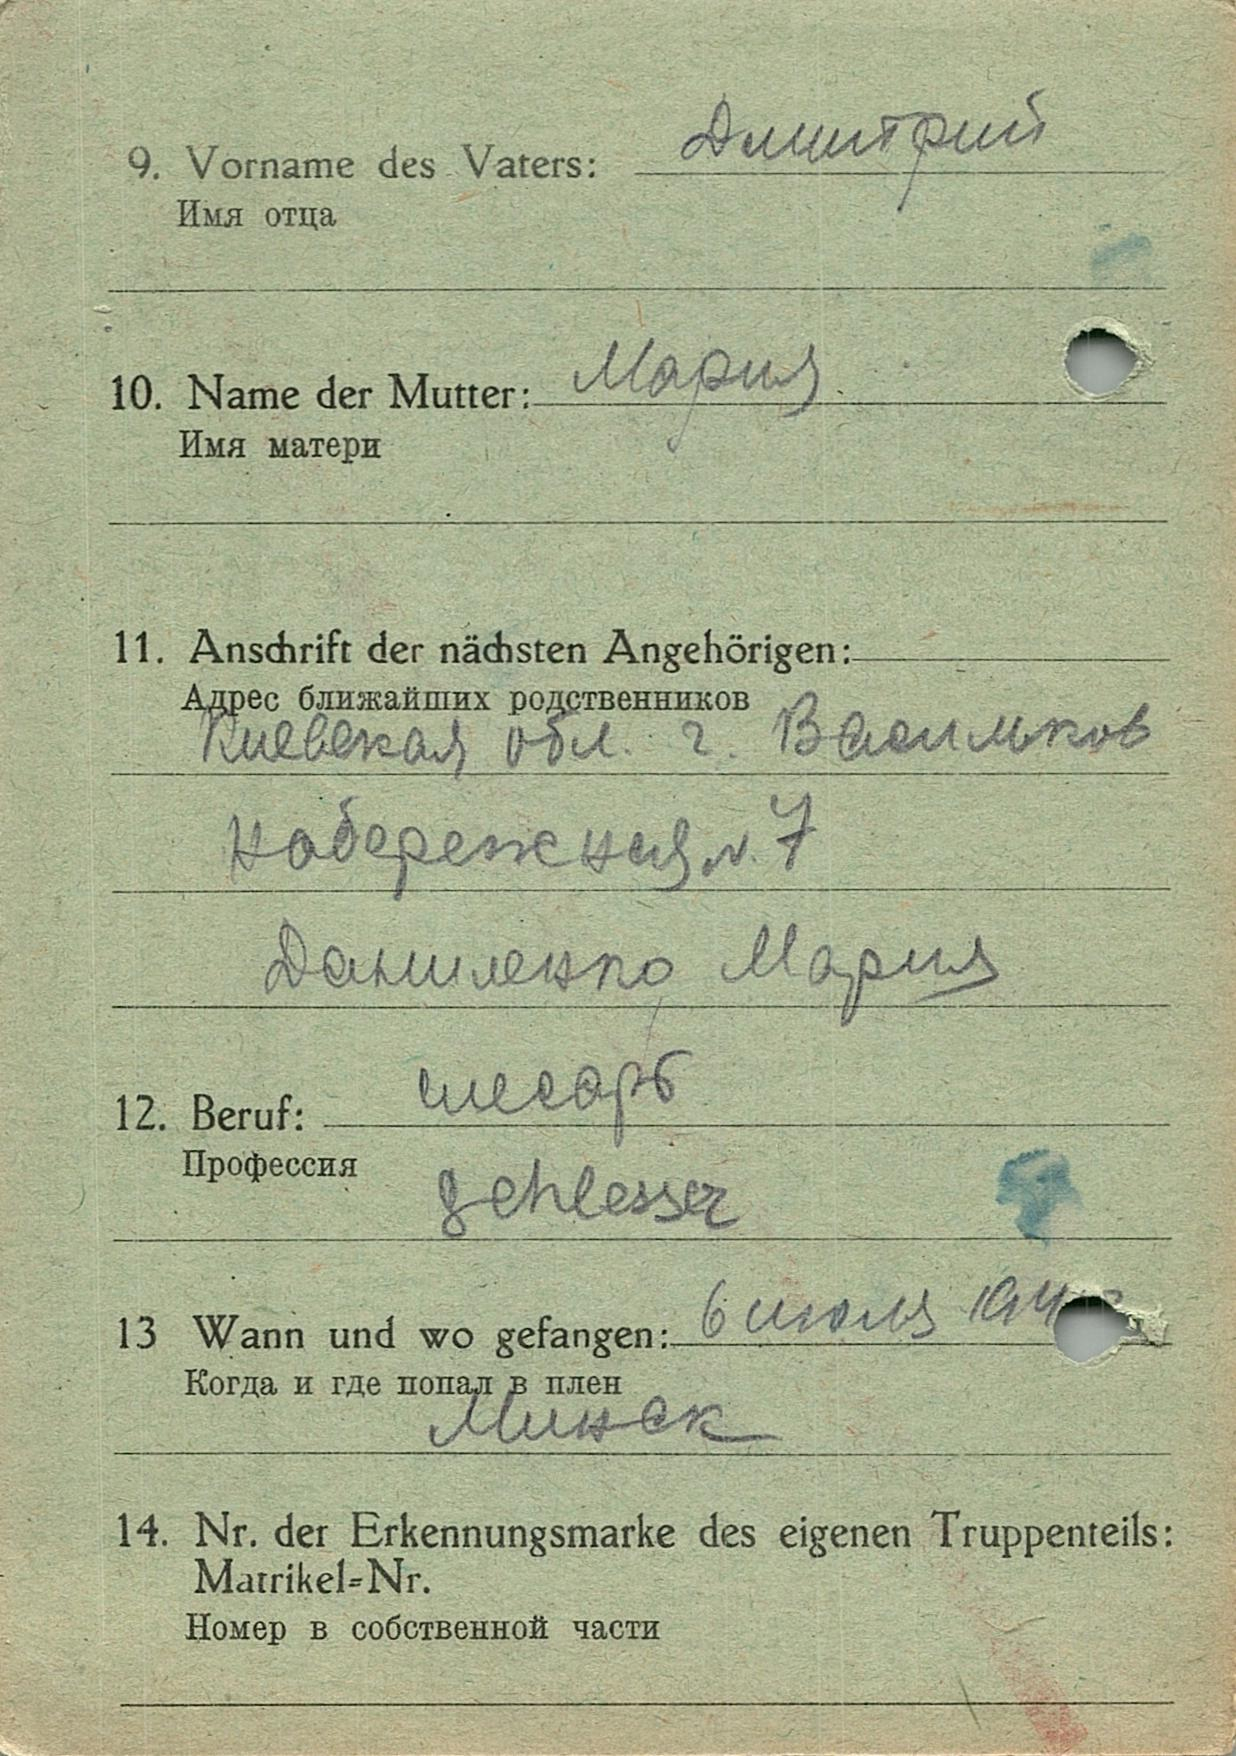 9. Vorname des Vaters: Дмитрий
Имя отца
10. Name der Mutter: Мария
Имя матери
11. Anschrift der nächsten Angehörigen:
Адрес ближайших родственников
Киевская обл. г. Васильков
Набережная N. 7
Даниленко Мария
12. Beruf: слесарь
Профессия
13 Wann und wo gefangen: 6 июля
Когда и где попал в плен
Минск
14. Nr. der Erkennungsmarke des eigenen Truppenteils:
Matrikel=Nr.
Номер в собственной части